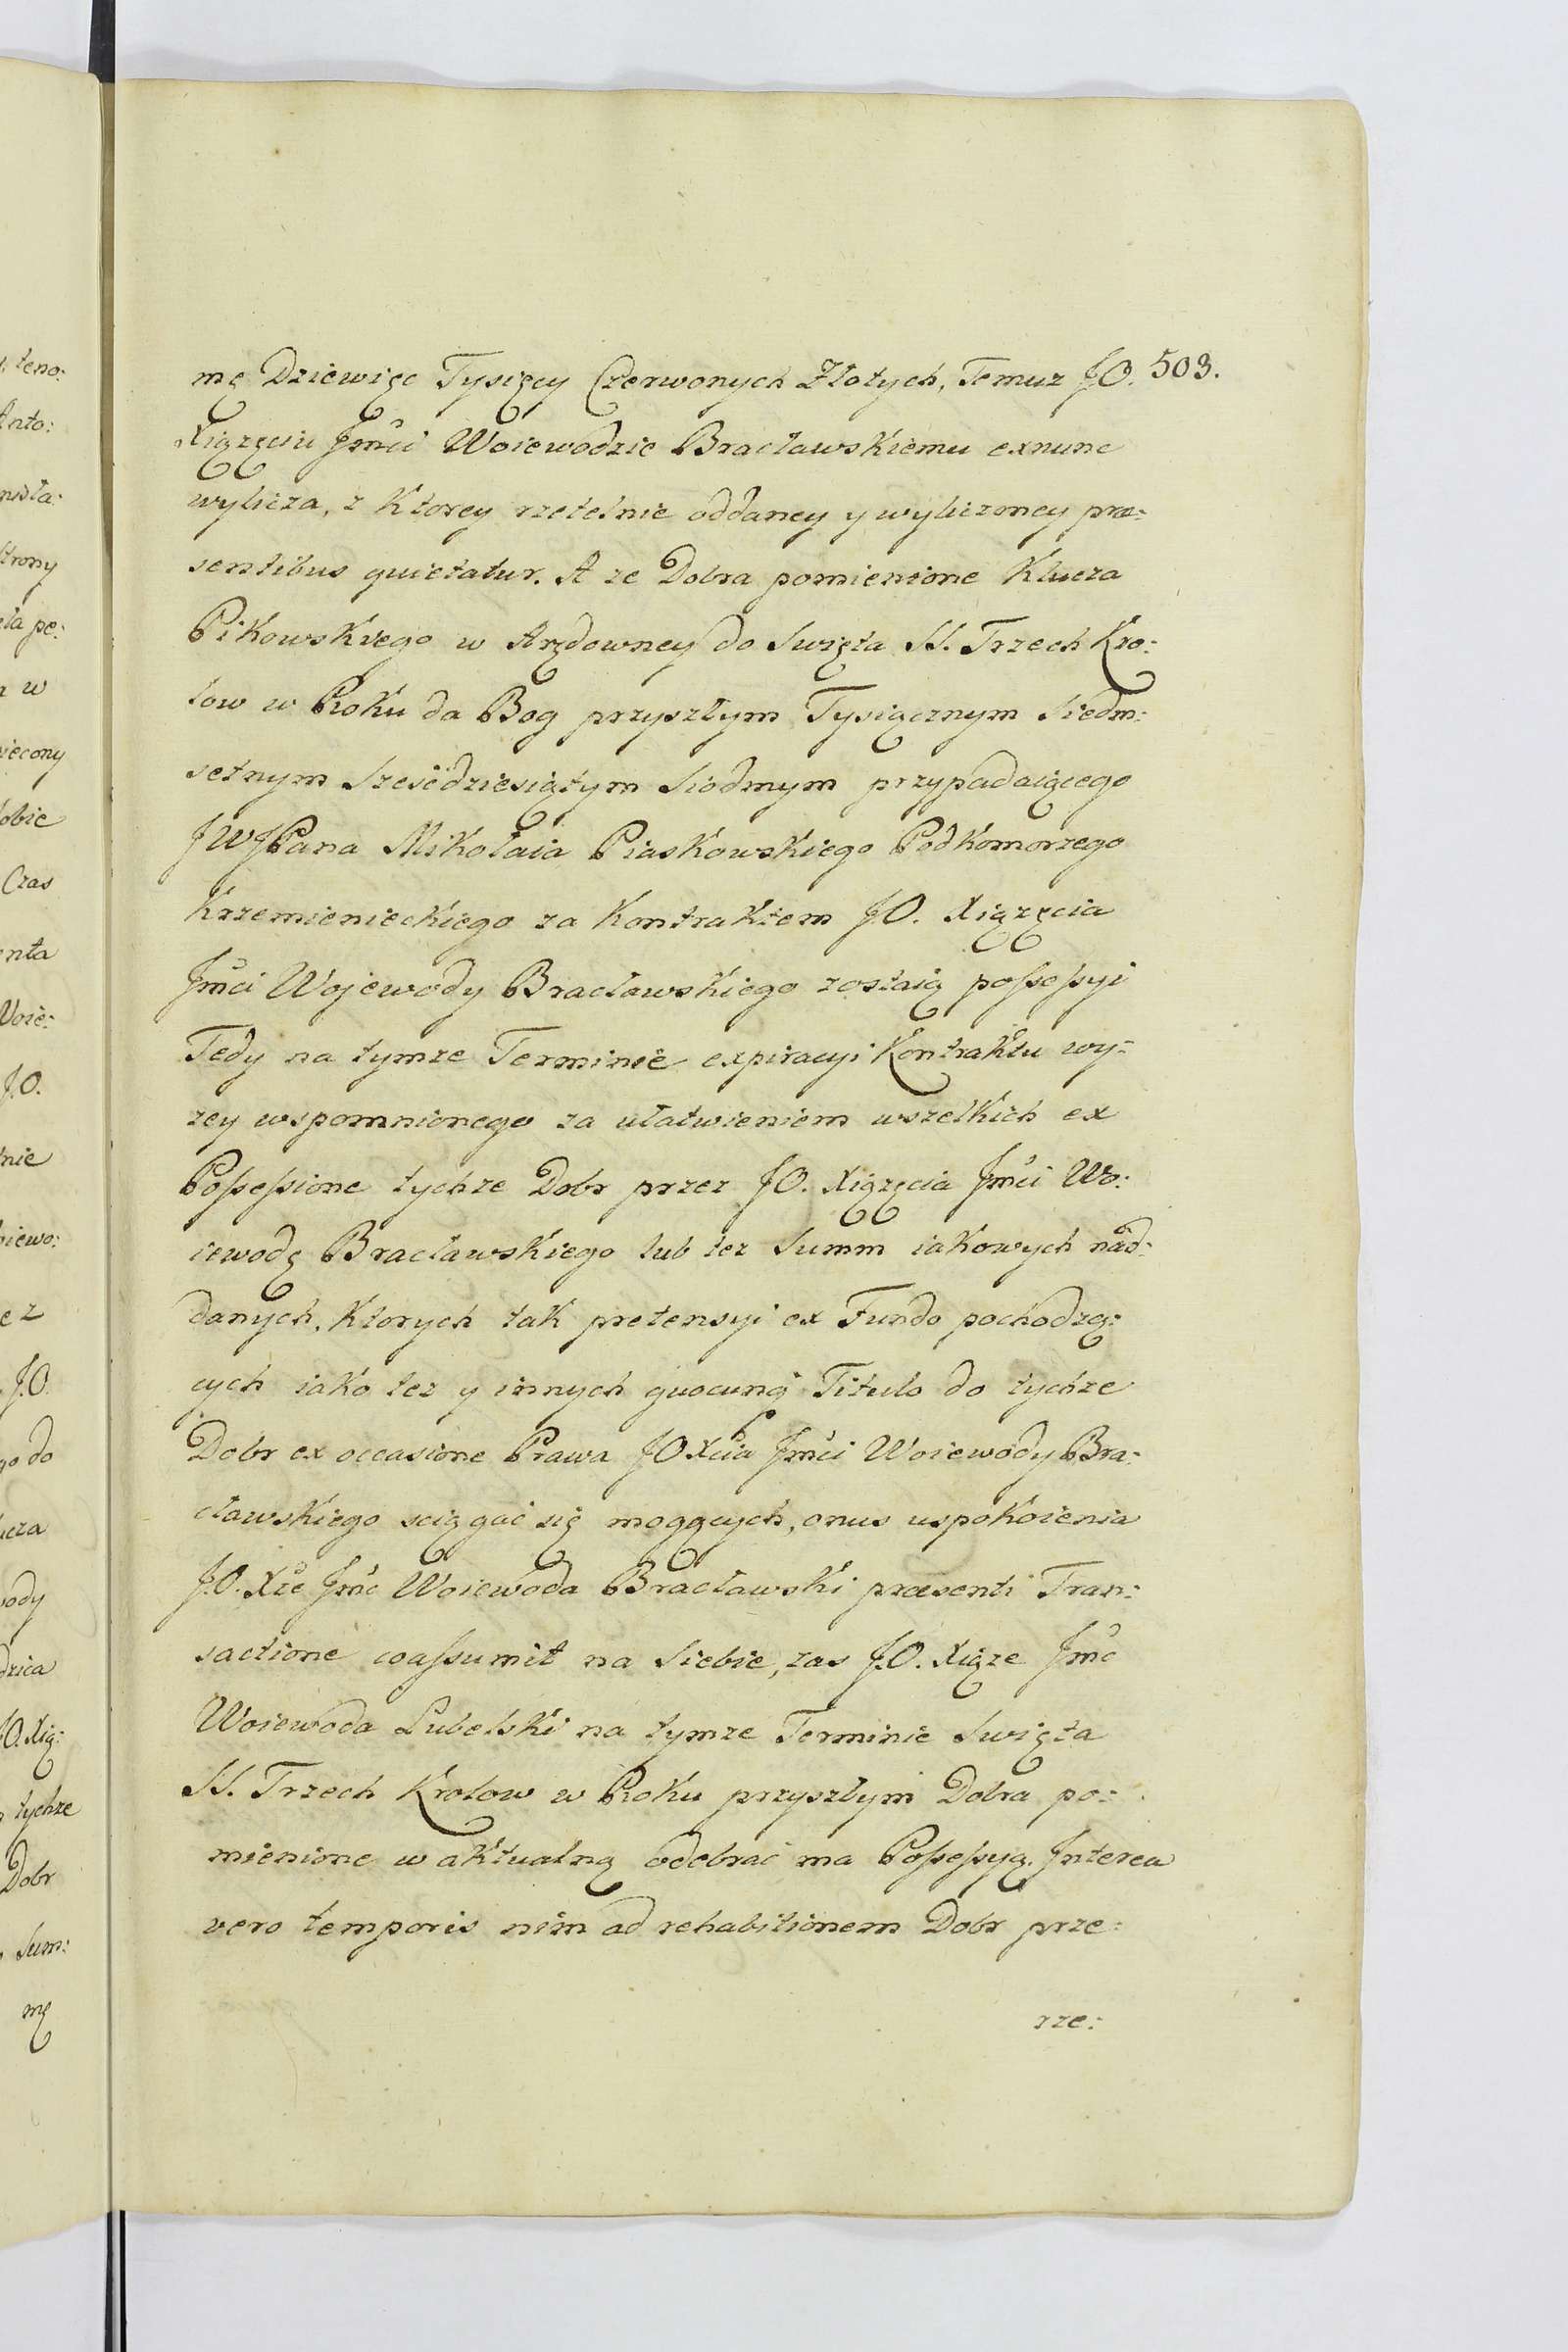 503.
mę Dziewięc Tysięcy Czerwonych Złotych, Temuz JO.
Xiązęciu Jmći Woiewodzie Bracławskiemu exnunc
wylicza, z Ktorey rzetelnie oddaney y wyliczoney præ:
sentibus quietatur. A ze Dobra pomienione Klucza
Pikowskiego w Arędowney do Swięta SS. Trzech Kro:
low w Roku da Bog przyszłym Tysiącznym Siedm:
setnym Szesćdziesiątym Siodmym przypadaiącego
JWJPana Mikołaia Piaskowskiego Podkomorzego
Krzemienieckiego za Kontraktem J.O. Xiązęcia
Jmći Wojewody Bracławskiego zostaią possessyi
Tedy na tymze Terminie expiracyi Kontraktu wy:
zey wspomnionego za ułatwieniem wszelkich ex
Possessione tychze Dobr przez JO. Xiązęcia Jmći Wo:
iewodę Bracławskiego lub tez Summ iakowych nad:
danych, Ktorych tak pretensyi ex Fundo pochodzą:
cych iako tez y innych quocunq Titulo do tychze
Dobr ex occasione Prawa JOXcia Jmći Woiewody Bra:
cławskiego sciągać się mogących, onus uspokoienia
J.O. Xze Jmć Woiewoda Bracławski præsenti Tran:
sactione coassumit na Siebie, zas J.O. Xiąze Jmć
Woiewoda Lubelski na tymze Terminie Swięta
SS. Trzech Krolow w Roku przyszłym Dobra po:
mienione w aktualną odebrać ma Possessyą. Interea
vero temporis nim ad rehabitionem Dobr prze:
rze:
teno:
Anto:
strony
w
obie
Czas
enta
Woie:
J.O.
nie
z
J.O.
do
tychze
Dobr
Sum:
mę